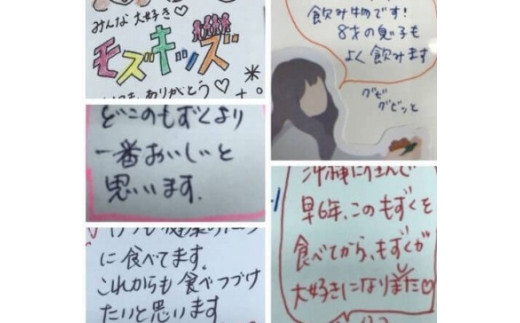 みんな大好き♡
モズキッズ
ありがとう♡
どこのもずくより
一番おいしいと
思います.
に食べてます.
これからも食べつづけ
たいと思います
飲み物です!
8才の息子も
よく飲みます
グビ
グビッと
沖縄に住んで
早6年、このもずくを
食べてから、もずくが
大好きになりました♡